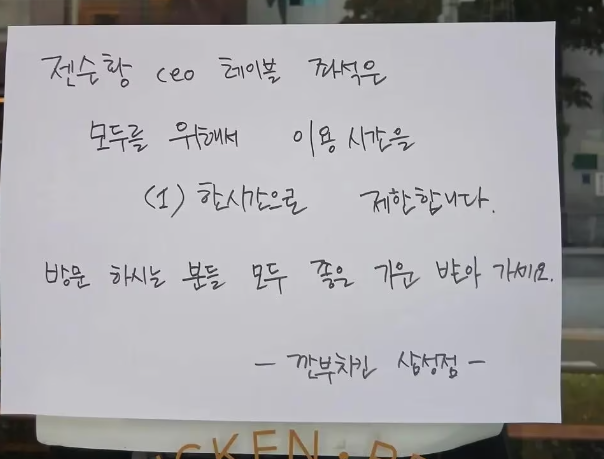 젠슨황 ceo 테이블 좌석은
모두를 위해서 이용시간을
(1) 한시간으로 제한합니다.
방문 하시는 분들 모두 좋은 기운 받아 가세요.
- 깐부치킨 삼성점 -
CKEN